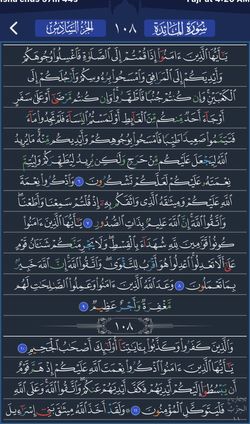 سُورَةُ المَائِدَةِ ١٠٨ الجُزْءُ السَّادِسُ
يَٰٓأَيُّهَا ٱلَّذِينَ ءَامَنُوٓا۟ إِذَا قُمْتُمْ إِلَى ٱلصَّلَوٰةِ فَٱغْسِلُوا۟ وُجُوهَكُمْ
وَأَيْدِيَكُمْ إِلَى ٱلْمَرَافِقِ وَٱمْسَحُوا۟ بِرُءُوسِكُمْ وَأَرْجُلَكُمْ إِلَى
ٱلْكَعْبَيْنِ وَإِن كُنتُمْ جُنُبًا فَٱطَّهَّرُوا۟ وَإِن كُنتُم مَّرْضَىٰٓ أَوْ عَلَىٰ سَفَرٍ
أَوْ جَآءَ أَحَدٌ مِّنكُم مِّنَ ٱلْغَآئِطِ أَوْ لَٰمَسْتُمُ ٱلنِّسَآءَ فَلَمْ تَجِدُوا۟ مَآءً
فَتَيَمَّمُوا۟ صَعِيدًا طَيِّبًا فَٱمْسَحُوا۟ بِوُجُوهِكُمْ وَأَيْدِيكُم مِّنْهُ مَا يُرِيدُ
ٱللَّهُ لِيَجْعَلَ عَلَيْكُم مِّنْ حَرَجٍ وَلَٰكِن يُرِيدُ لِيُطَهِّرَكُمْ وَلِيُتِمَّ
نِعْمَتَهُۥ عَلَيْكُمْ لَعَلَّكُمْ تَشْكُرُونَ ٦ وَٱذْكُرُوا۟ نِعْمَةَ
ٱللَّهِ عَلَيْكُمْ وَمِيثَٰقَهُ ٱلَّذِى وَاثَقَكُم بِهِۦٓ إِذْ قُلْتُمْ سَمِعْنَا وَأَطَعْنَا
وَٱتَّقُوا۟ ٱللَّهَ إِنَّ ٱللَّهَ عَلِيمٌۢ بِذَاتِ ٱلصُّدُورِ ٧ يَٰٓأَيُّهَا ٱلَّذِينَ ءَامَنُوا۟
كُونُوا۟ قَوَّٰمِينَ لِلَّهِ شُهَدَآءَ بِٱلْقِسْطِ وَلَا يَجْرِمَنَّكُمْ شَنَـَٔانُ قَوْمٍ
عَلَىٰٓ أَلَّا تَعْدِلُوا۟ ٱعْدِلُوا۟ هُوَ أَقْرَبُ لِلتَّقْوَىٰ وَٱتَّقُوا۟ ٱللَّهَ إِنَّ ٱللَّهَ خَبِيرٌۢ
بِمَا تَعْمَلُونَ ٨ وَعَدَ ٱللَّهُ ٱلَّذِينَ ءَامَنُوا۟ وَعَمِلُوا۟ ٱلصَّٰلِحَٰتِ لَهُم
مَّغْفِرَةٌ وَأَجْرٌ عَظِيمٌ ٩
١٠٨
وَٱلَّذِينَ كَفَرُوا۟ وَكَذَّبُوا۟ بِـَٔايَٰتِنَآ أُو۟لَٰٓئِكَ أَصْحَٰبُ ٱلْجَحِيمِ ١٠
يَٰٓأَيُّهَا ٱلَّذِينَ ءَامَنُوا۟ ٱذْكُرُوا۟ نِعْمَتَ ٱللَّهِ عَلَيْكُمْ إِذْ هَمَّ قَوْمٌ
أَن يَبْسُطُوٓا۟ إِلَيْكُمْ أَيْدِيَهُمْ فَكَفَّ أَيْدِيَهُمْ عَنكُمْ وَٱتَّقُوا۟ ٱللَّهَ وَعَلَى ٱللَّهِ
فَلْيَتَوَكَّلِ ٱلْمُؤْمِنُونَ ١١ وَلَقَدْ أَخَذَ ٱللَّهُ مِيثَٰقَ بَنِىٓ إِسْرَٰٓءِيلَ